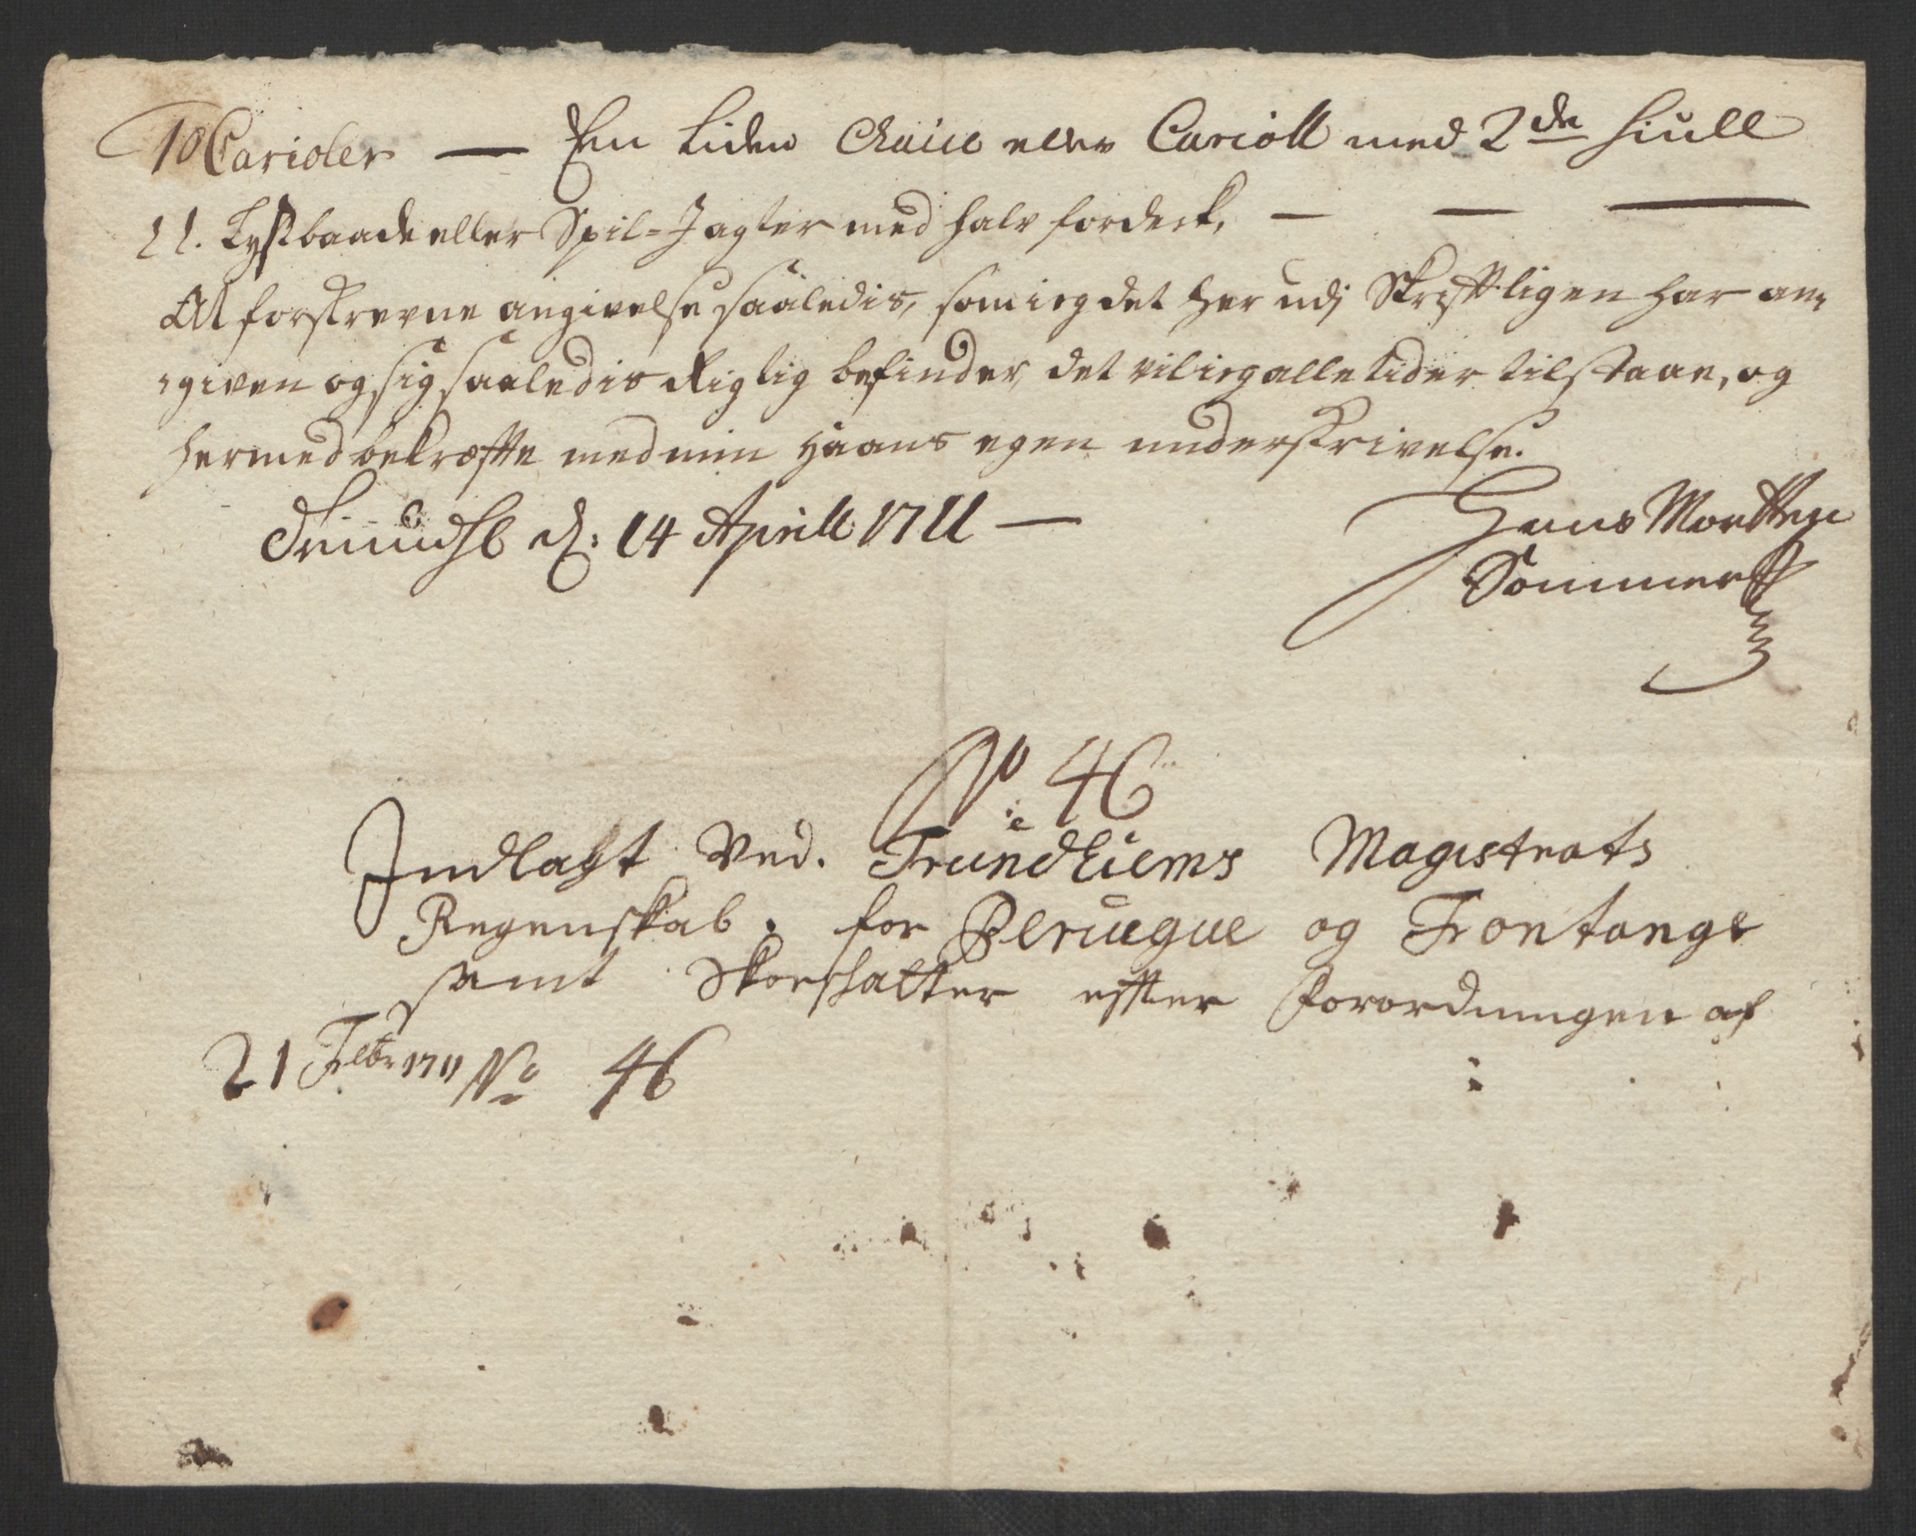 10 Carioler — Em liden Chaise eller Cariott med 2de Hiull
11. Lystbaade eller Spil-Jagter med halv fordeck, — — —
At forskrevne angivelse saaledis, som ieg det her udj Skrifftligen har an-
-given og sig saaledis Rigtig befinder, det vil ieg alle tider tilstaae, og
hermed bekræffte med min Haans egen underskrivelse.
Trundhl d: 14 Aprill 1711 —
Hans Mortten
Sommer
No 46
Indlagt Ved. Trundhiems Magistrats
Regenskab. for Peruque og Fontange
samt Skoeshatter effter Forordningen af
21 Febr 1711 No 46